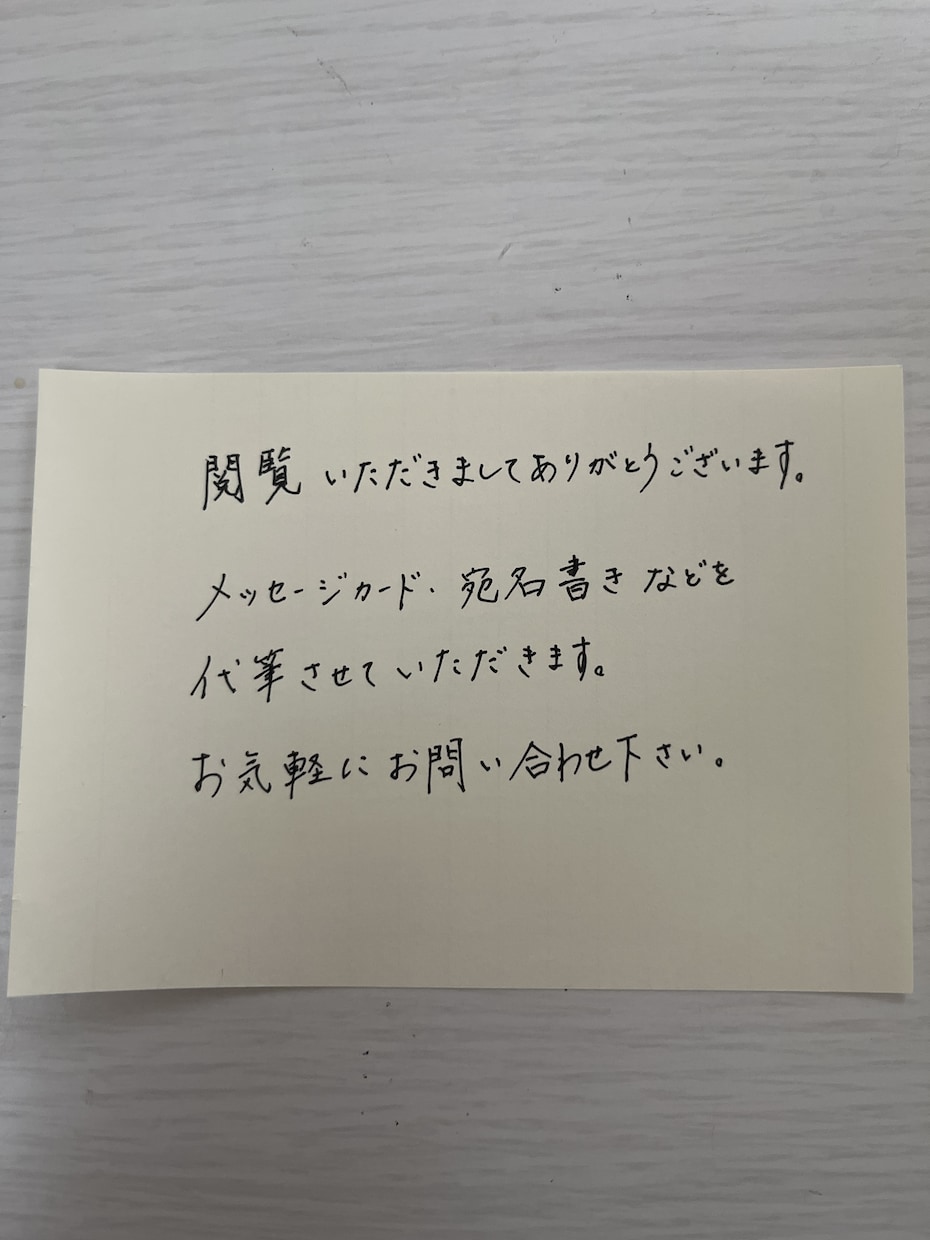 閲覧いただきましてありがとうございます。
メッセージカード、宛名書きなどを
代筆させていただきます。
お気軽にお問い合わせ下さい。